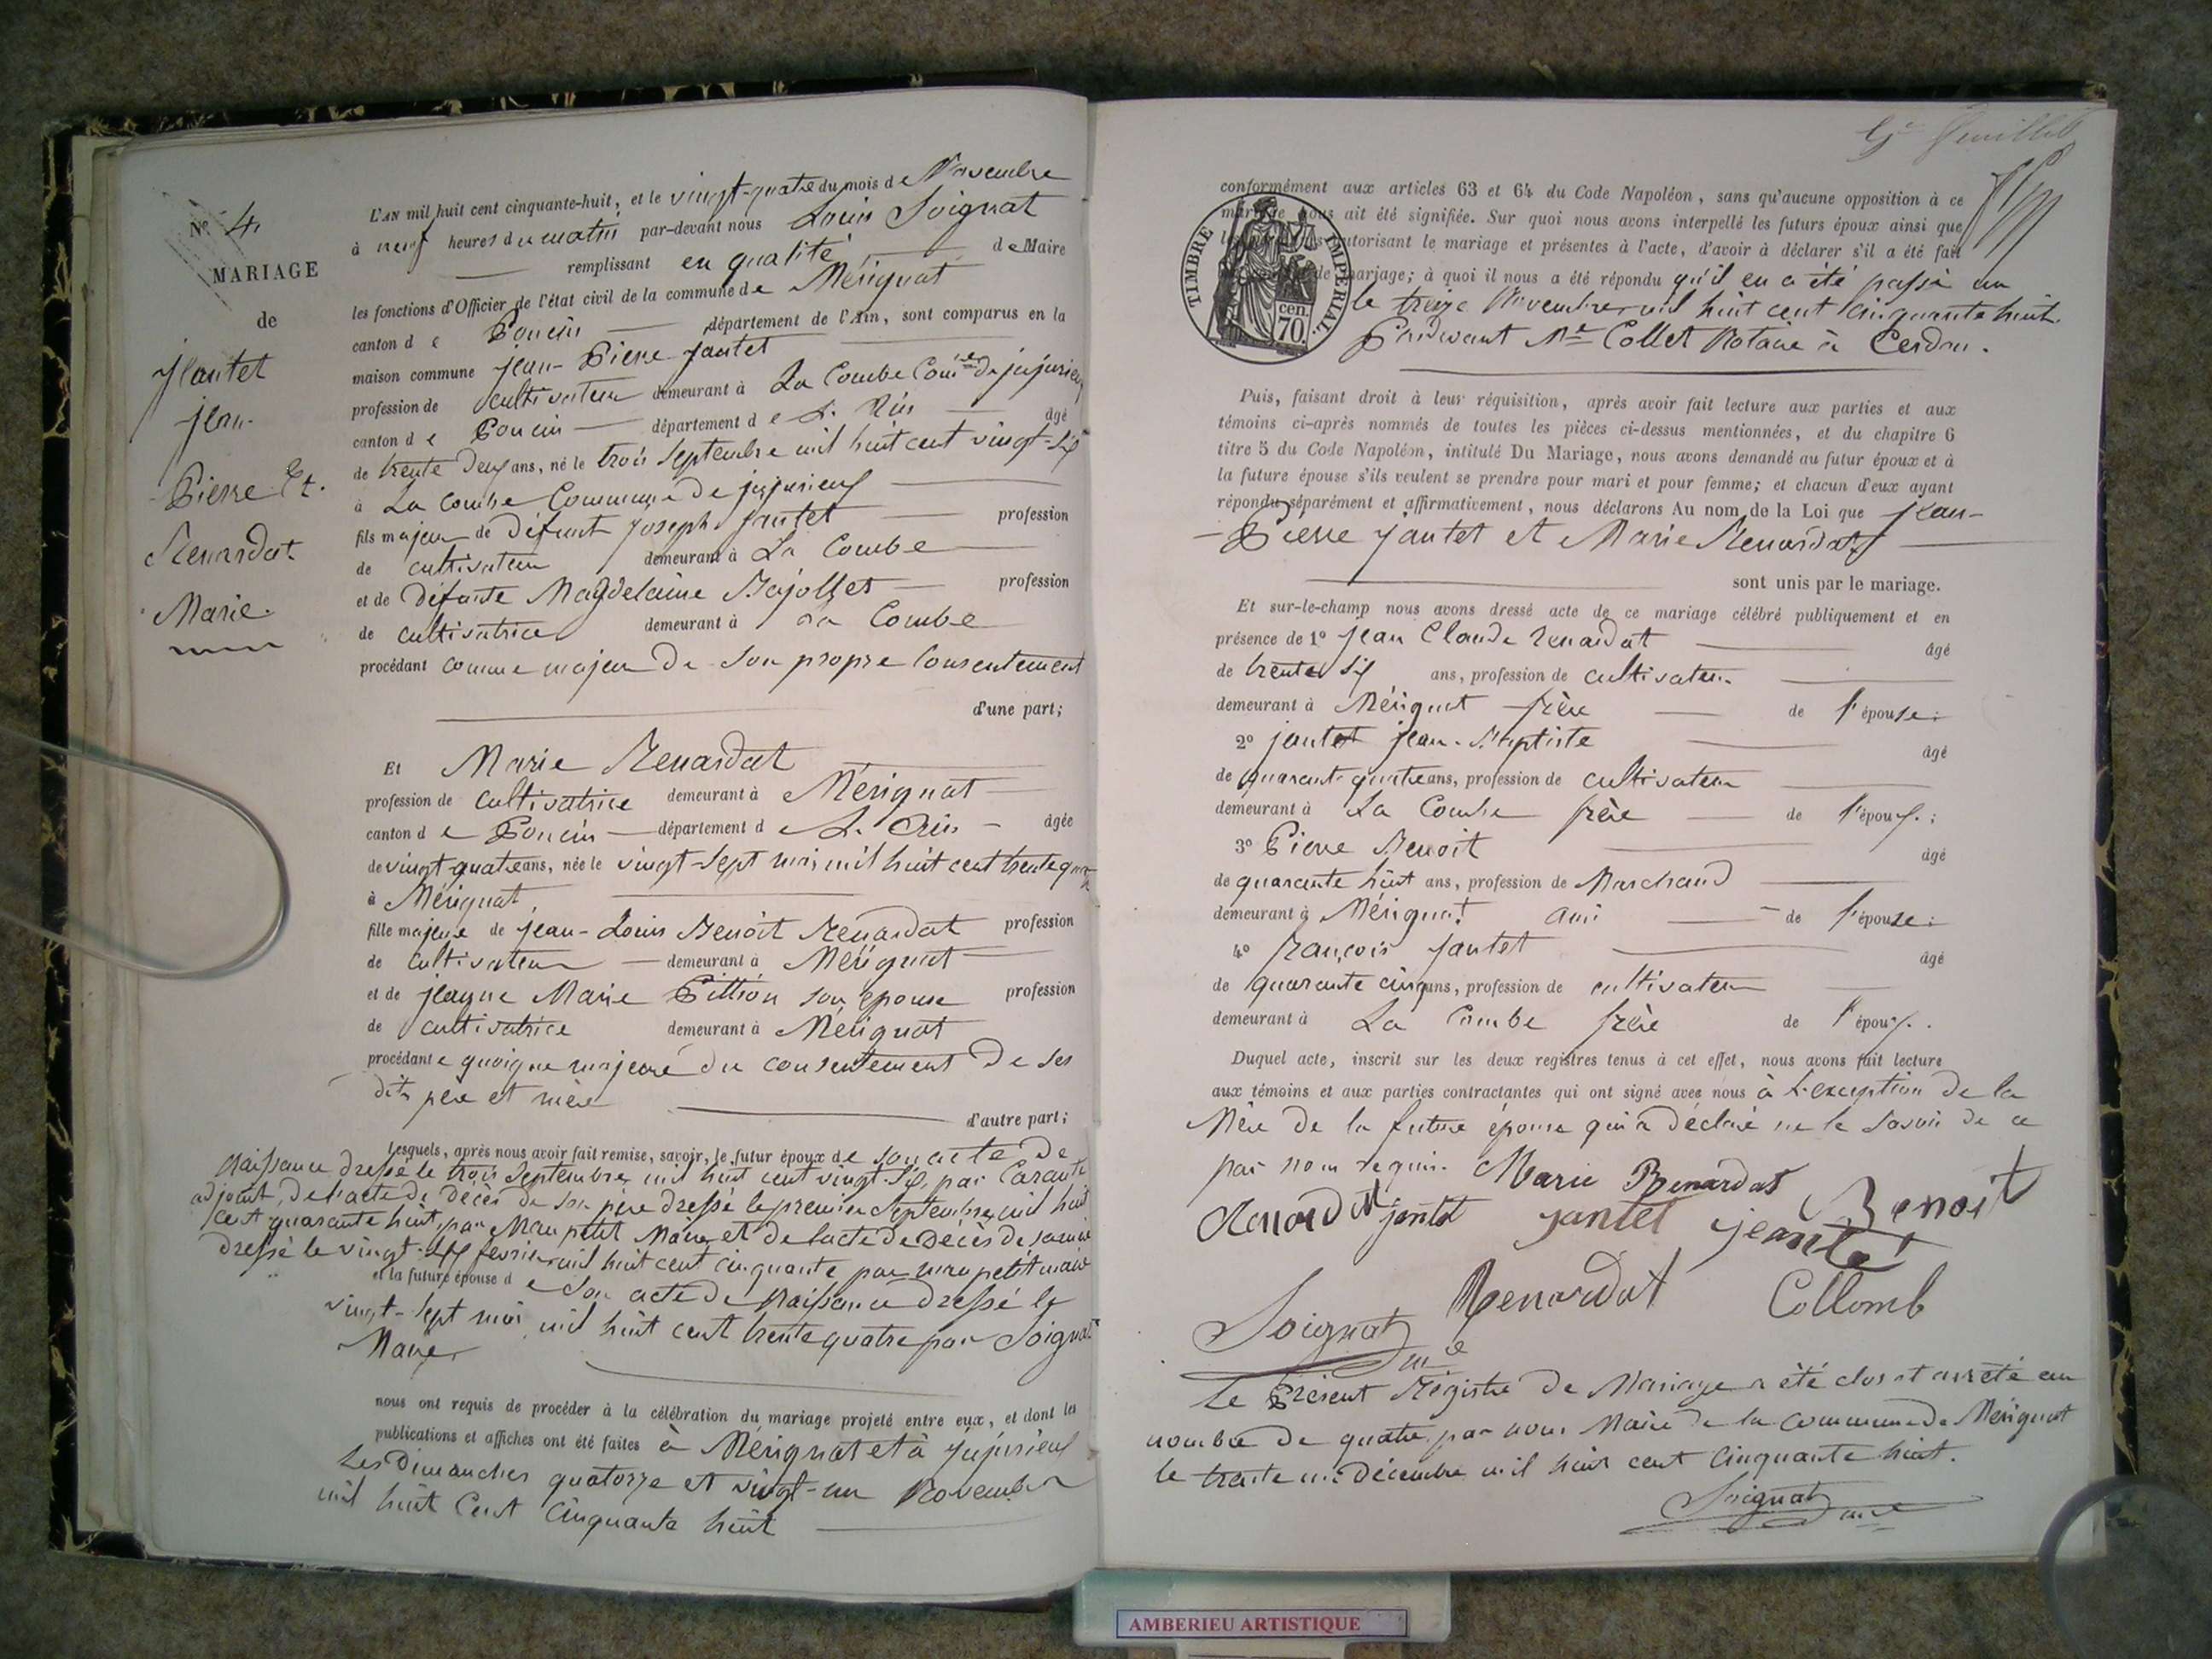 N° 4.
MARIAGE
de
Jantet
Jean-
Pierre Et.
Renardat
Marie.
L'AN mil huit cent cinquante-huit, et le vingt-quatre du mois de Novembre
à neuf heures du matin par-devant nous Louis Soignat
remplissant en qualité de Maire
les fonctions d'Officier de l'état civil de la commune de Mérignat
canton de Poncin département de l'Ain, sont comparus en la
maison commune Jean-Pierre Jantet
profession de cultivateur demeurant à La Combe Com.ne de jujurieux
canton de Poncin département de L'Ain âgé
de trente deux ans, né le trois Septembre mil huit cent vingt-six
à La Combe Commune de jujurieux
fils majeur de défunt Joseph Jantet profession
de cultivateur demeurant à La Combe
et de défunte Magdelaine profession
de cultivatrice demeurant à La Combe
procédant comme majeur de son propre consentement
d'une part;
Et Marie Renardat
profession de cultivatrice demeurant à Mérignat
canton de Poncin département de L'Ain âgée
de vingt-quatre ans, née le vingt-sept mai mil huit cent trente quatre
à Mérignat
fille majeure de Jean-Louis Benoit Renardat profession
de cultivateur demeurant à Mérignat
et de jeanne Marie Pittion son épouse profession
de cultivatrice demeurant à Mérignat
procédante quoique majeure du consentement de ses
dits père et mère
d'autre part;
Lesquels, après nous avoir fait remise, savoir, le futur époux de son acte de
Naissance dressé le trois Septembre mil huit cent vingt-six, par
adjoint, de l'acte de décès de son père dressé le premier Septembre mil huit
cent quarante huit, par Maupetit Maire et de l'acte de Décès de sa mère
dressé le vingt-six février mil huit cent cinquante par maupetit maire
et la future épouse de son acte de Naissance dressé le
vingt-sept mai mil huit cent trente quatre par Soignat
Maire
nous ont requis de procéder à la célébration du mariage projeté entre eux, et dont les
publications et affiches ont été faites à Mérignat et à jujurieux
Les Dimanches quatorze et vingt-un Novembre
mil huit Cent Cinquante huit
feuillet
conformément aux articles 63 et 64 du Code Napoléon, sans qu'aucune opposition à ce
mariage nous ait été signifiée. Sur quoi nous avons interpellé les futurs époux ainsi que
autorisant le mariage et présentes à l'acte, d'avoir à déclarer s'il a été fait
de mariage; à quoi il nous a été répondu qu'il en a été passé un
TIMBRE IMPERIAL.
cen.
70.
le treize Novembre mil huit cent cinquante huit
Pardevant Me Collet Notaire à Cerdon.
Puis, faisant droit à leur réquisition, après avoir fait lecture aux parties et aux
témoins ci-après nommés de toutes les pièces ci-dessus mentionnées, et du chapitre 6
titre 5 du Code Napoléon, intitulé Du Mariage, nous avons demandé au futur époux et à
la future épouse s'ils veulent se prendre pour mari et pour femme; et chacun d'eux ayant
répondu séparément et affirmativement, nous déclarons Au nom de la Loi que Jean-
-Pierre Jantet et Marie Renardat
sont unis par le mariage.
Et sur-le-champ nous avons dressé acte de ce mariage célébré publiquement et en
présence de 1° Jean Claude Renardat âgé
de trente six ans, profession de cultivateur
demeurant à Mérignat frère de l'épouse;
2° Jantet Jean-Baptiste âgé
de quarante quatre ans, profession de cultivateur
demeurant à La Combe frère de l'époux;
3° Pierre Benoit âgé
de quarante huit ans, profession de Marchand
demeurant à Mérignat ami de l'épouse;
4° françois Jantet âgé
de quarante cinq ans, profession de cultivateur
demeurant à La Combe frère de l'époux.
Duquel acte, inscrit sur les deux registres tenus à cet effet, nous avons fait lecture
aux témoins et aux parties contractantes qui ont signé avec nous à L'exception de la
Mère de la future épouse qui a déclaré ne le savoir de ce
par nous requise. Marie Renardat
Renardat jantet Jantet jeantet Benoit
Soignat Renardat Collomb
me
Le Présent Régistre de Mariage a été clos et arrêté au
nombre de quatre par nous Maire de la Commune de Mérignat
le trente un décembre mil huit cent Cinquante huit.
Soignat
AMBERIEU ARTISTIQUE